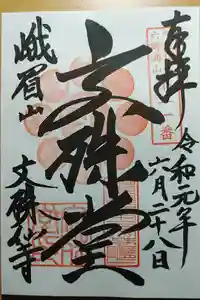 奉拝
令和元年
六月二十八日
文殊堂
峨眉山
文殊仙寺